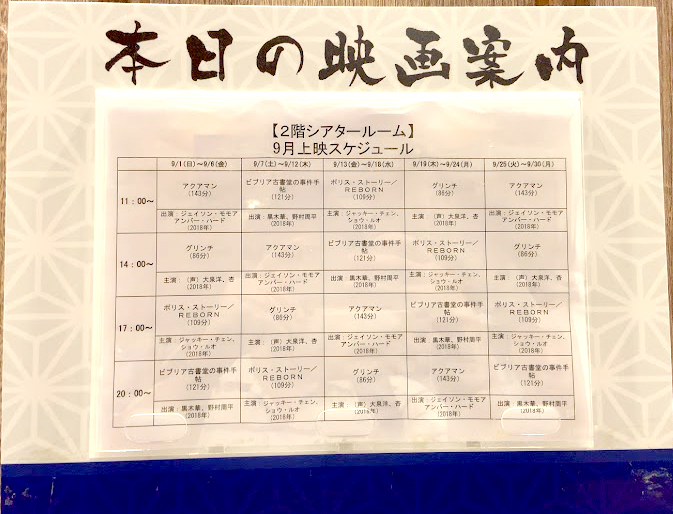 本日の映画案内
【2階シアタールーム】
9月上映スケジュール
9/1(日)~9/6(金) 9/7(土)~9/12(木) 9/13(金)~9/18(水) 9/19(木)~9/24(月) 9/25(火)~9/30(月)
11:00~
アクアマン
(143分)
出演:ジェイソン・モモア
アンバー・ハード
(2018年)
ビブリア古書堂の事件手
帖
(121分)
出演:黒木華、野村周平
(2018年)
ポリス・ストーリー/
REBORN
(109分)
主演:ジャッキー・チェン、
ショウ・ルオ
(2018年)
グリンチ
(86分)
主演:(声)大泉洋、杏
(2018年)
アクアマン
(143分)
出演:ジェイソン・モモア
アンバー・ハード
(2018年)
14:00~
グリンチ
(86分)
主演:(声)大泉洋、杏
(2018年)
アクアマン
(143分)
出演:ジェイソン・モモア
アンバー・ハード
(2018年)
ビブリア古書堂の事件手
帖
(121分)
出演:黒木華、野村周平
(2018年)
ポリス・ストーリー/
REBORN
(109分)
主演:ジャッキー・チェン、
ショウ・ルオ
(2018年)
グリンチ
(86分)
主演:(声)大泉洋、杏
(2018年)
17:00~
ポリス・ストーリー/
REBORN
(109分)
主演:ジャッキー・チェン、
ショウ・ルオ
(2018年)
グリンチ
(86分)
主演:(声)大泉洋、杏
(2018年)
アクアマン
(143分)
出演:ジェイソン・モモア
アンバー・ハード
(2018年)
ビブリア古書堂の事件手
帖
(121分)
出演:黒木華、野村周平
(2018年)
ポリス・ストーリー/
REBORN
(109分)
主演:ジャッキー・チェン、
ショウ・ルオ
(2018年)
20:00~
ビブリア古書堂の事件手
帖
(121分)
出演:黒木華、野村周平
(2018年)
ポリス・ストーリー/
REBORN
(109分)
主演:ジャッキー・チェン、
ショウ・ルオ
(2018年)
グリンチ
(86分)
主演:(声)大泉洋、杏
(2018年)
アクアマン
(143分)
出演:ジェイソン・モモア
アンバー・ハード
(2018年)
ビブリア古書堂の事件手
帖
(121分)
出演:黒木華、野村周平
(2018年)